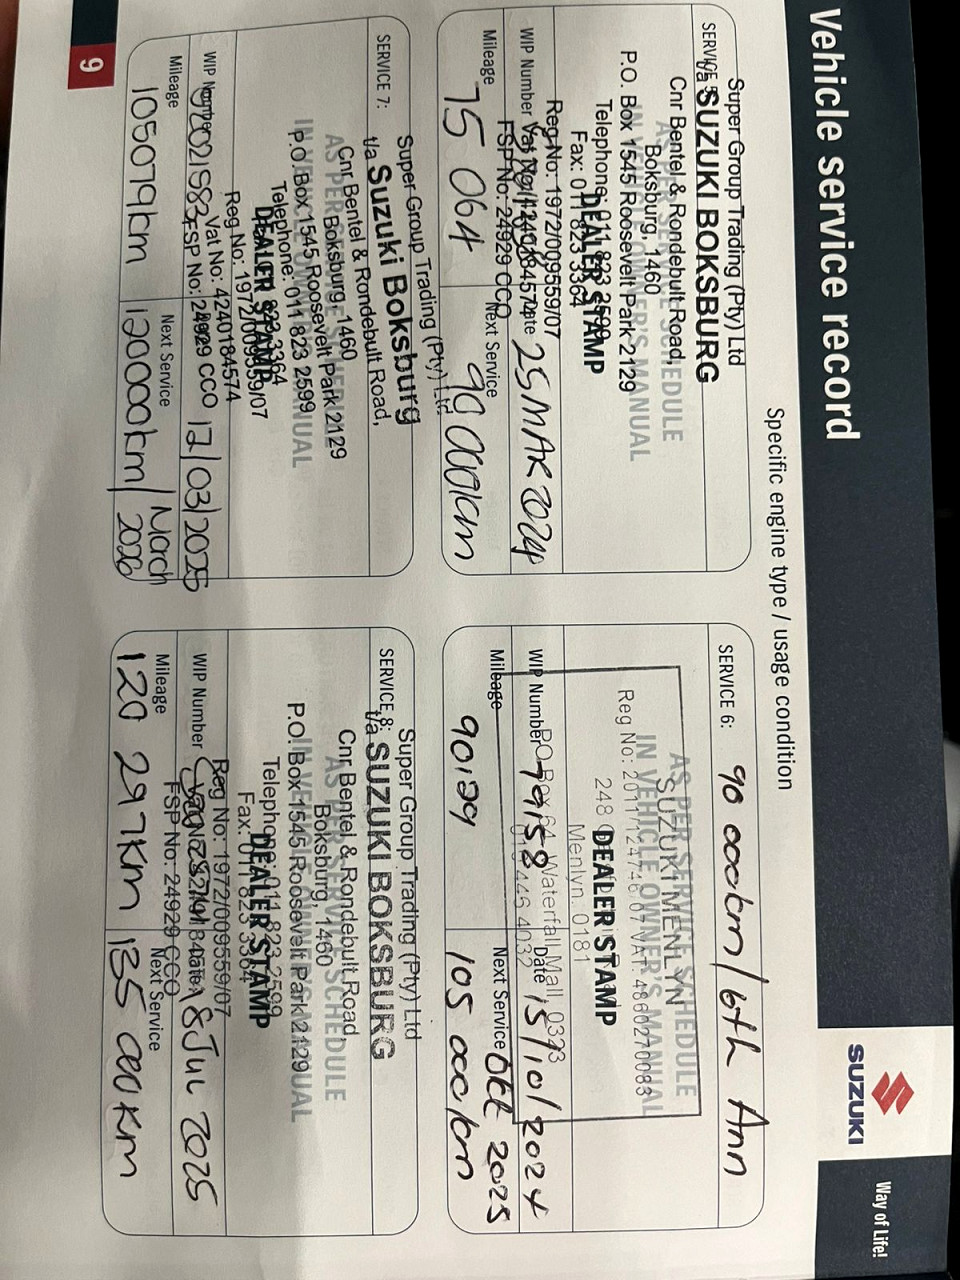 Vehicle service record
SUZUKI
Way of Life!
Specific engine type / usage condition
SERVICE 5:
Super Group Trading (Pty) Ltd
t/a SUZUKI BOKSBURG
Cnr Bentel & Rondebult Road,
Boksburg, 1460
P.O. Box 1545 Roosevelt Park 2129
Telephone: 011 823 2599
Fax: 011 823 3364
Reg No: 1972/009559/07
FSP No: 24929 CCO
AS PER SERVICE SCHEDULE
IN VEHICLE OWNER'S MANUAL
DEALER STAMP
WIP Number
Date 25 MAR 2024
Mileage
75 064
Next Service
90 000km
SERVICE 6: 90 000km/6th Ann
AS PER SERVICE SCHEDULE
IN VEHICLE OWNER'S MANUAL
SUZUKI MENLYN
DEALER STAMP
Menlyn. 0181
PO Box 64 Waterfall Mall, 0323
WIP Number 79158
Date 15/10/2024
Mileage
90139
Next Service Okt 2025
105 000km
SERVICE 7:
Super Group Trading (Pty) Ltd
t/a Suzuki Boksburg
Cnr Bentel & Rondebult Road,
Boksburg, 1460
P.O. Box 1545 Roosevelt Park 2129
Telephone: 011 823 2599
Reg No: 1972/009559/07
Vat No: 4240184574
FSP No: 24929 CCO
AS PER SERVICE SCHEDULE
IN VEHICLE OWNER'S MANUAL
DEALER STAMP
WIP Number
12/03/2025
Mileage
105079km
Next Service
120000km/ March 2026
SERVICE 8:
Super Group Trading (Pty) Ltd
t/a SUZUKI BOKSBURG
Cnr Bentel & Rondebult Road,
Boksburg, 1460
P.O. Box 1545 Roosevelt Park 2129
Telephone: 011 823 2599
Fax: 011 823 3364
Reg No: 1972/009559/07
FSP No: 24929 CCO
AS PER SERVICE SCHEDULE
IN VEHICLE OWNER'S MANUAL
DEALER STAMP
WIP Number
Date 18 JUL 2025
Mileage
120 297km
Next Service
135 000km
9